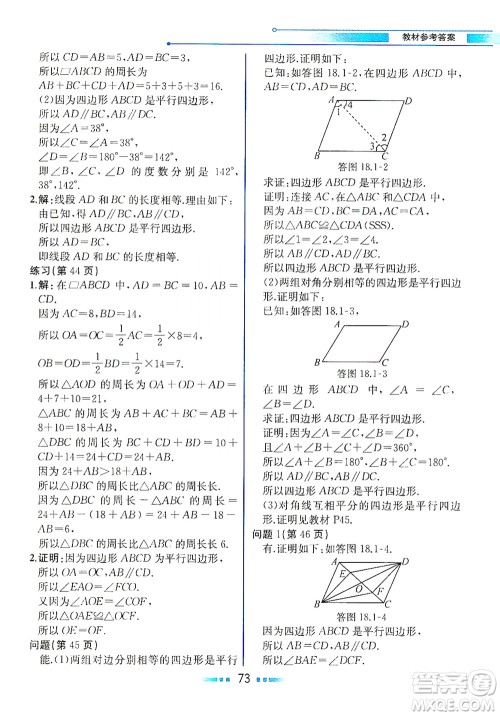 教材参考答案
所以 CD=AB=5，AD=BC=3.
所以□ABCD 的周长为
AB+BC+CD+AD=5+3+5+3=16.
(2)因为四边形 ABCD 是平行四边形，
所以 AD∥BC，AB∥DC.
因为∠A=38°，
所以∠C=∠A=38°，
∠D=∠B=180°-38°=142°.
即∠B，∠C，∠D 的度数分别是 142°，
38°，142°.
2.解：线段 AD 和 BC 的长度相等.理由如下：
由已知，得 AD∥BC，AB∥DC，
所以四边形 ABCD 是平行四边形.
所以 AD=BC.
即线段 AD 和 BC 的长度相等.
练习(第 44 页)
1.解：在□ABCD 中，AD=BC=10，AB=
CD.
因为 AC=8，BD=14，
所以 OA=OC=1/2 AC=1/2×8=4，
OB=OD=1/2 BD=1/2×14=7.
所以△AOD 的周长为 OA+OD+AD=
4+7+10=21.
△ABC 的周长为 AB+AC+BC=AB+
8+10=18+AB.
△DBC 的周长为 BD+BC+CD=14+
10+CD=24+AB.
因为 24+AB>18+AB，
所以△DBC 的周长比△ABC 的周长长.
因为△DBC 的周长为 24+AB，△ABC
的周长为 18+AB，24+AB-(18+
AB)=6，
所以△DBC 的周长比△ABC 的周长长 6.
2.证明：因为四边形 ABCD 为平行四边形，
所以 OA=OC，AB∥CD.
所以∠EAO=∠FCO.
又因为∠AOE=∠COF，
所以△AOE≌△COF.
所以 OE=OF.
问题(第 45 页)
能.(1)两组对边分别相等的四边形是平行
四边形.证明如下：
已知：如答图 18.1-2，在四边形 ABCD
中，AB=CD，AD=BC.
A
D
1
4
2
3
B
C
答图 18.1-2
求证：四边形 ABCD 是平行四边形.
证明：连接 AC，在△ABC 和△CDA 中，
因为 AB=CD，BC=DA，AC=CA，
所以△ABC≌△CDA(SSS).
所以∠1=∠2，∠3=∠4.
所以 AB∥CD，AD∥BC.
所以四边形 ABCD 是平行四边形.
(2)两组对角分别相等的四边形是平行四
边形.证明如下：
已知：如答图 18.1-3，
A
D
B
C
答图 18.1-3
在四边形 ABCD 中，∠A=∠C，
∠B=∠D.
求证：四边形 ABCD 是平行四边形.
证明：因为∠A=∠C，∠B=∠D，
且∠A+∠B+∠C+∠D=360°，
所以∠A+∠B=180°，∠B+∠C=180°.
所以 AD∥BC，AB∥CD.
所以四边形 ABCD 是平行四边形.
(3)对角线互相平分的四边形是平行四边
形.证明见教材 P45.
问题 1(第 46 页)
有.证明：如答图 18.1-4，
A
D
E
O
F
B
C
答图 18.1-4
因为四边形 ABCD 是平行四边形，
所以 AB=CD，AB∥CD.
所以∠BAE=∠DCF.
73